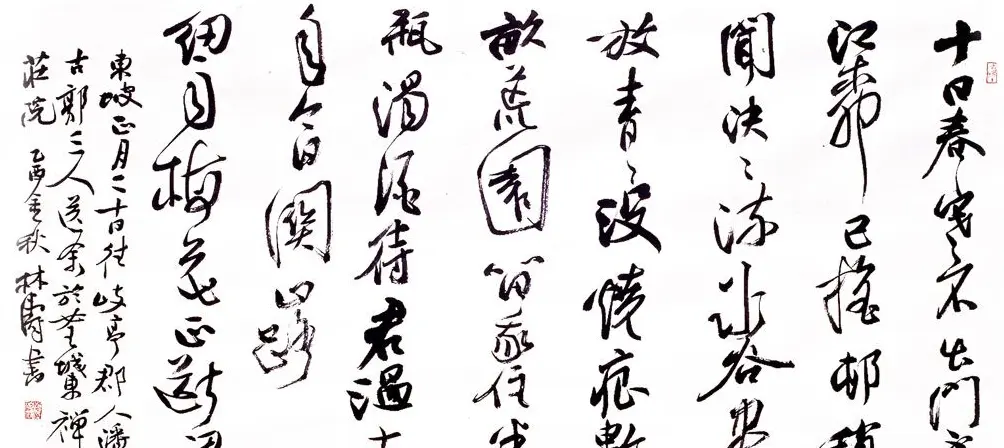 十日春寒不出門
江柳已搖邨稍
聞決〻流冰谷
放青〻沒燒痕數
畝荒園留我住半
瓶濁酒待君溫
年今日關山路
細雨梅花正斷
東坡正月二十日往岐亭郡人潘
古郭三人送余於女王城東禪
莊院 乙酉金秋 林濤書